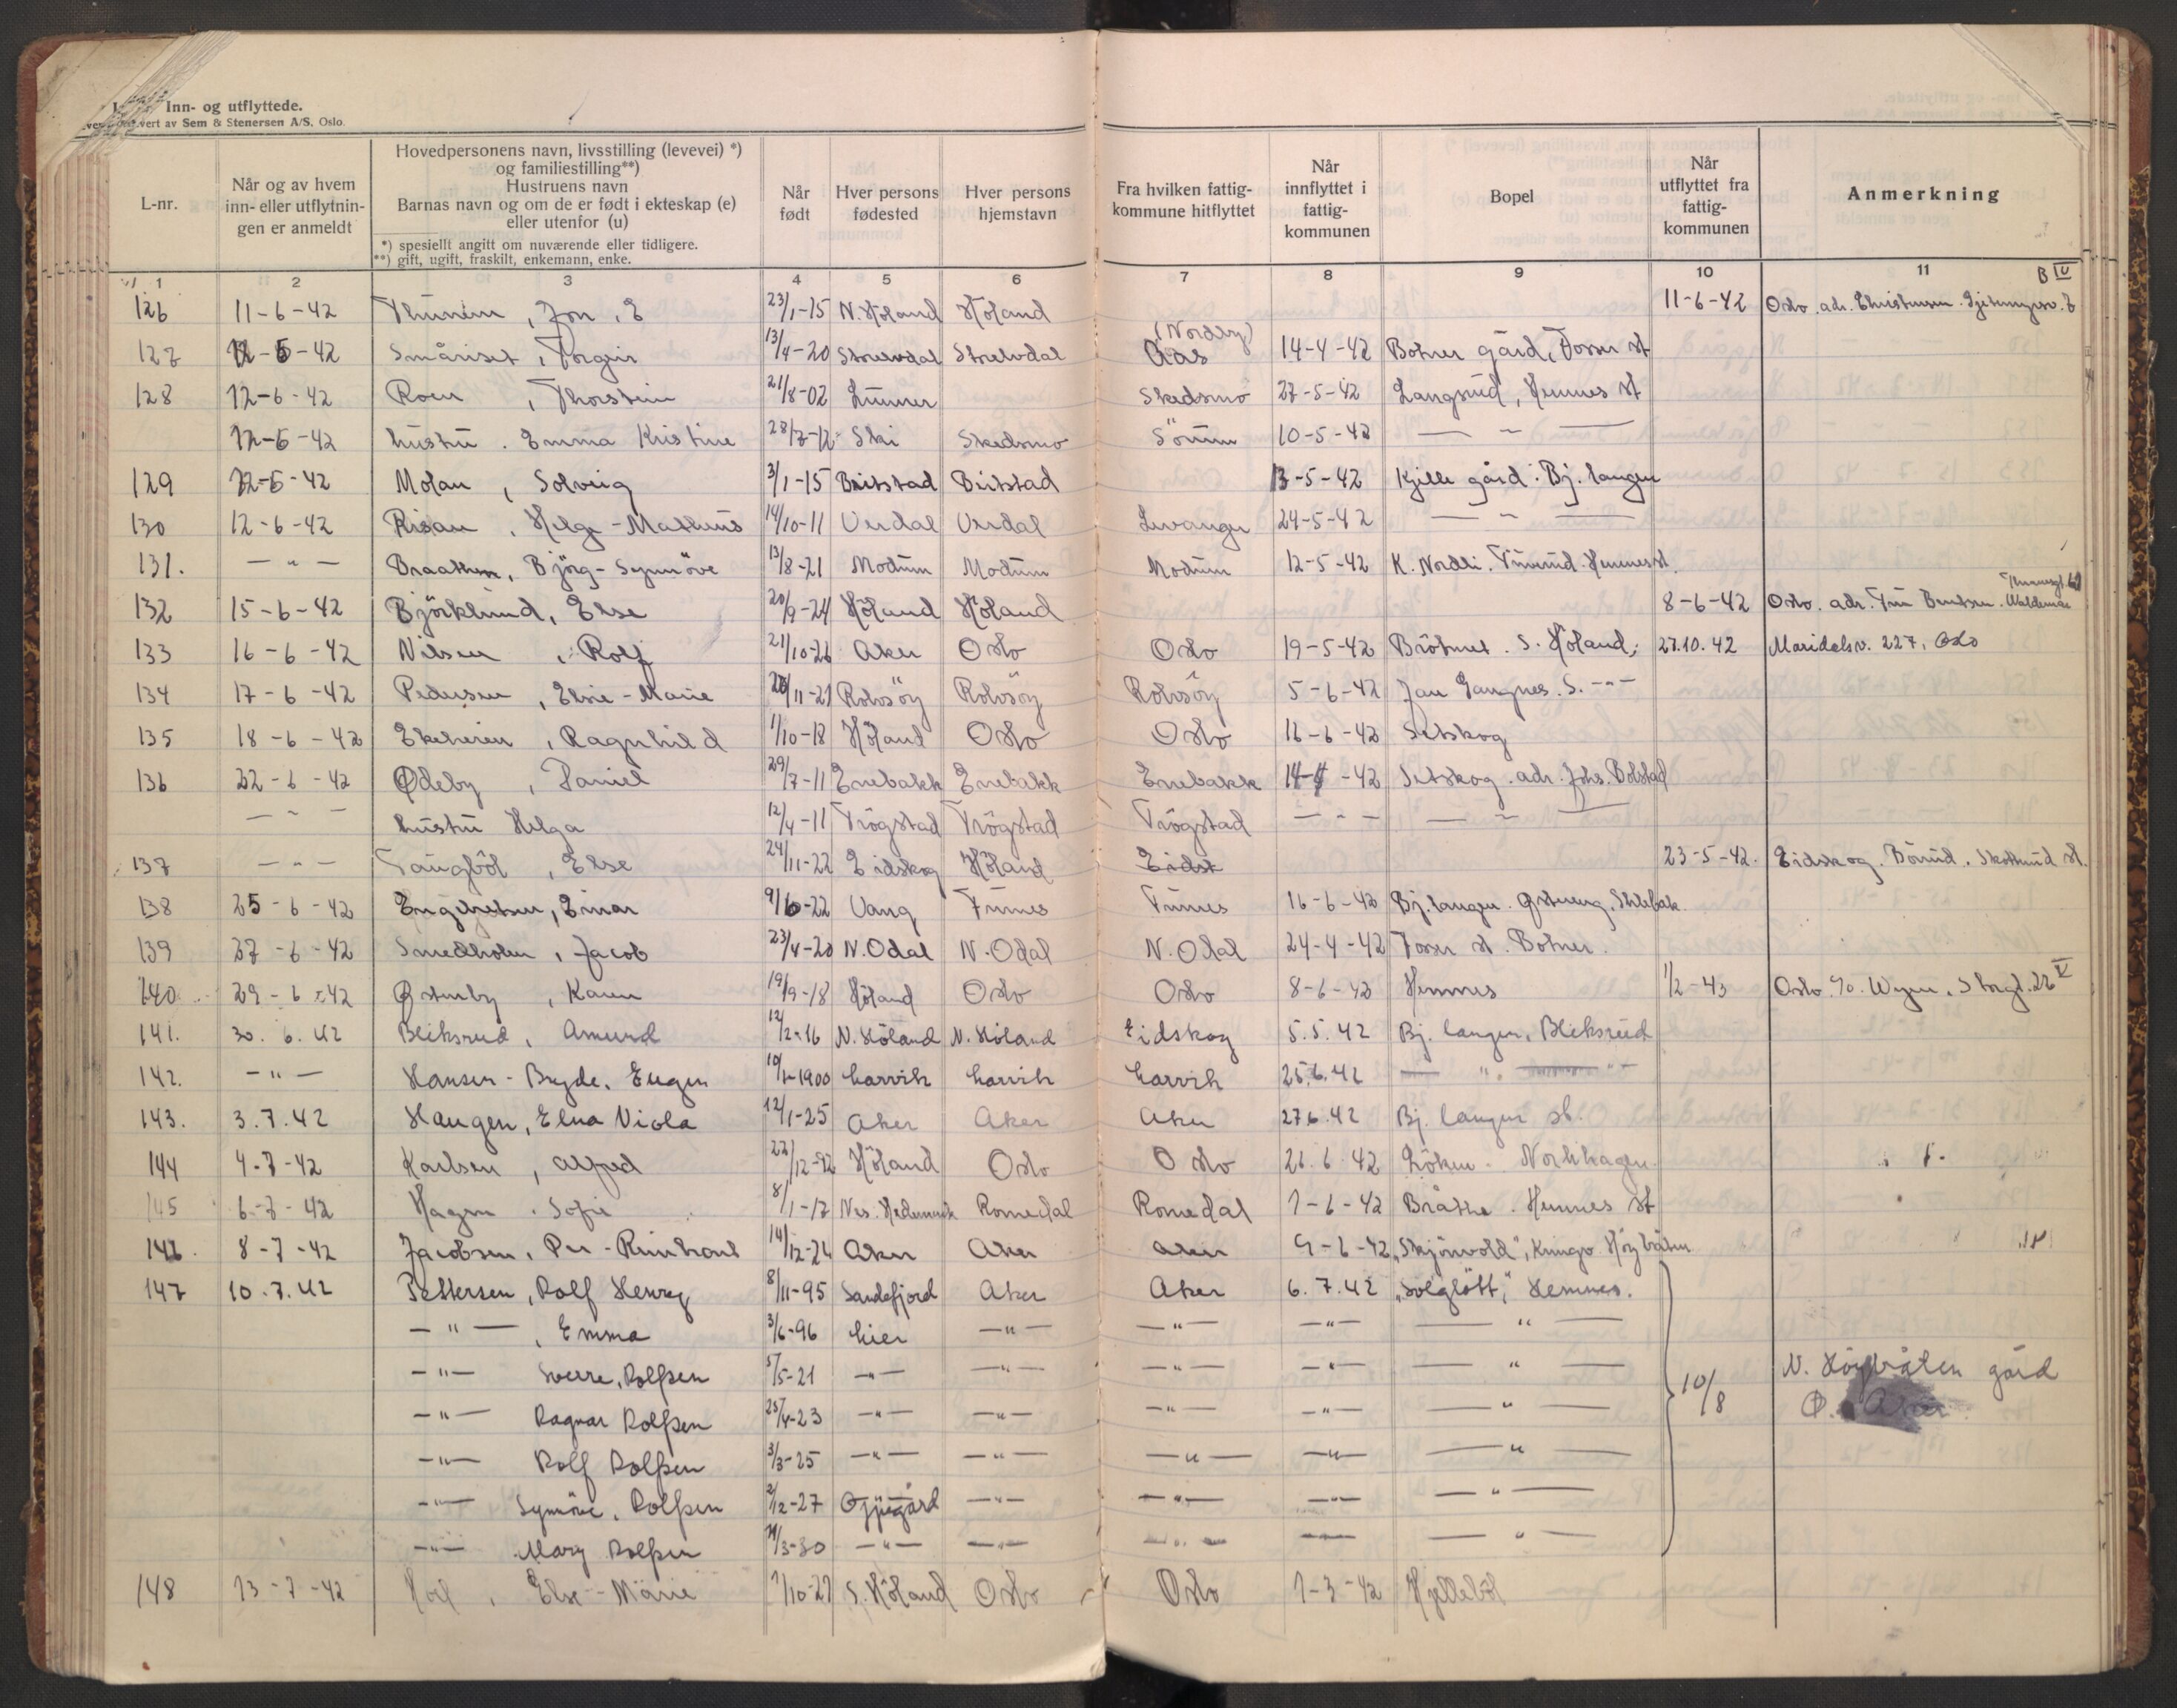 Inn- og utflyttede.
vert av Sem & Stenersen A/S. Oslo.
L-nr.
Når og av hvem inn- eller utflytnin-gen er anmeldt
Hovedpersonens navn, livsstilling (levevei) *) og familiestilling**)
Hustruens navn
Barnas navn og om de er født i ekteskap (e) eller utenfor (u)
*) spesiellt angitt om nuværende eller tidligere.
**) gift, ugift, fraskilt, enkemann, enke.
Når født
Hver persons fødested
Hver persons hjemstavn
Fra hvilken fattig-kommune hitflyttet
Når innflyttet i fattig-kommunen
Bopel
Når utflyttet fra fattig-kommunen
Anmerkning
1 2 3 4 5 6 7 8 9 10 11
126 11-6-42 , Jon, E 23/1-15 N. Höland Höland 11-6-42 Oslo. adr. Christensen.
127 12-6-42 Småriset, Torgeir 13/4-20 (Nordby) Aas 14-4-42 Botner gård, Fosser st
128 12-6-42 Roen, Thorstein 21/8-02 Lunner Skedsmo 27-5-42 Langsrud, Hemnes st
12-6-42 hustru. Emma Kristine 28/7-12 Ski Skedsmo Sörum 10-5-42 — " —
129 12-6-42 Molan, Solveig 3/1-15 Beitstad Beitstad 13-5-42 Kjelle gård. Bj. langen
130 12-6-42 Risan, Helge-Matheus 14/10-11 Verdal Verdal Levanger 24-5-42 — " —
131. — " — Braathen, Björg-Synnöve 13/8-21 Modum Modum Modum 12-5-42 K. Nordli. Hemnes st.
132 15-6-42 Björklund, Else 20/9-24 Höland Höland 8-6-42 Oslo. adr. Fru Bentsen. Waldemar
133 16-6-42 Nilsen, Rolf 21/10-26 Aker Oslo Oslo 19-5-42 Bråtnes. S. Höland; 27.10.42 Maridalsv. 227, Oslo
134 17-6-42 Pedersen, Elsie-Marie /11-21 Rolvsöy Rolvsöy Rolvsöy 5-6-42 Jan Gangnes. S. -"-
135 18-6-42 , Ragnhild 1/10-18 Höland Oslo Oslo 16-6-42 Setskog
136 22-6-42 Ødeby, Daniel 29/7-11 Enebakk Enebakk Enebakk 14-4-42 Setskog. adr. Johs. Bolstad
— " — hustru Helga 12/4-11 Trögstad Trögstad Trögstad — " — — " —
137 — " — Taugböl, Else 24/11-22 Eidskog Höland Eidsk 23-5-42. Eidskog. Börud. Skotterud st.
138 25-6-42 Engebretsen, Einar 9/6-22 Vang Furnes Furnes 16-6-42 Bj. langen. Østereng.
139 27-6-42 Smedholen, Jacob 23/4-20 N. Odal N. Odal N. Odal 24-4-42 Fosser st. Botner.
140 29-6-42 Østerby, Karen 19/9-18 Höland Oslo Oslo 8-6-42 Hemnes 1/2-43 Oslo. Storgt. 26 V
141. 30.6.42 Bliksrud, Amund 12/2-16 N. Höland N. Höland Eidskog 5.5.42 Bj. langen, Bliksrud
142. — " — Hansen-Bryde, Eugen 10/1-1900 Larvik Larvik Larvik 25.6.42 — " —
143. 3.7.42 Haugen, Elna Viola 12/1-25 Aker Aker Aker 27.6.42 Bj. langen st.
144 4-7-42 Karlsen, Alfred 22/12-92 Höland Oslo Oslo 26.6.42 Löken. Nordhagen.
145 6-7-42 Hagen, Sofie 8/1-17 Nes. Hedemark Romedal Romedal 1-6-42 Bråthe. Hemnes st
146. 8-7-42 Jacobsen, Per-Reinhart 14/12-24 Aker Aker Aker 9-6-42 "Skjönvold",
147 10.7.42 Pettersen, Rolf Henry 8/11-95 Sandefjord Aker Aker 6.7.42 "Solglött", Hemnes.
— " —, Emma 3/6-96 Lier — " — — " — — " — — " —
— " — Sverre, Rolfsen 5/5-21 — " — — " — — " — — " — — " — 10/8 N. Höybråten gård
— " — Ragnar Rolfsen 25/4-23 — " — — " — — " — — " — — " — Ø. Aker
— " — Rolf Rolfsen 3/3-25 — " — — " — — " — — " — — " —
— " — Synöve, Rolfsen 2/12-27 Opjegård — " — — " — — " — — " —
— " — Mary Rolfsen /3-30 — " — — " — — " — — " — — " —
148 13-7-42 , Else-Marie 1/10-27 S. Höland Oslo Oslo 1-3-42 Hjelleböl